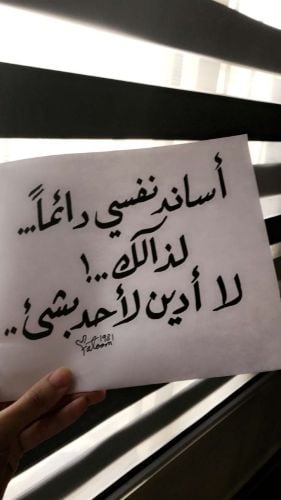 أساند نفسي دائماً...
لذالك..!
لا أدين لأحد بشئ..
1981
Fatoom